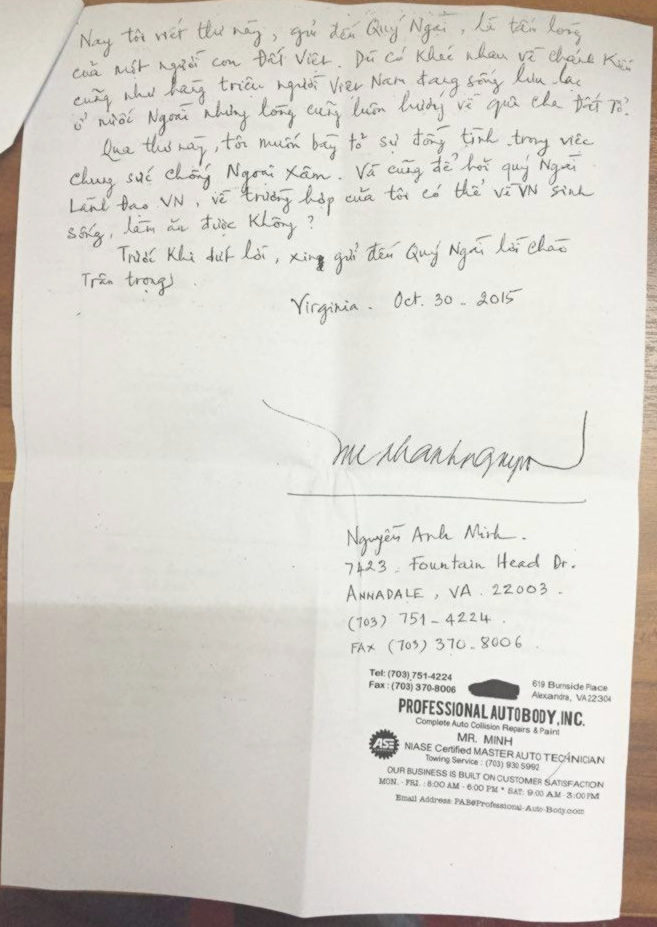 Nay tôi viết thư này, gửi đến Quý Ngài, là tấm lòng
của một người con Đất Việt. Dù có khác nhau về chánh kiến
cũng như hàng triệu người Việt Nam đang sống lưu lạc
ở nước Ngoài nhưng lòng cũng luôn hướng về quê cha Đất Tổ.
Qua thư này, tôi muốn bày tỏ sự đồng tình trong việc
chung sức chống Ngoại Xâm. Và cũng để hỏi quý Ngài
Lãnh Đạo VN, về trường hợp của tôi có thể về VN sinh
sống, làm ăn được Không?
Trước Khi dứt lời, xin gửi đến Quý Ngài lời chào
Trân trọng
Virginia. Oct. 30 - 2015
Nguyễn Anh Minh.
7423 - Fountain Head Dr.
ANNADALE, VA. 22003.
(703) 751-4224.
FAX (703) 370-8006.
Tel: (703) 751-4224
Fax: (703) 370-8006
619 Burnside Place
Alexandria, VA22304
PROFESSIONAL AUTOBODY, INC.
Complete Auto Collision Repairs & Paint
MR. MINH
ASE
NIASE Certified MASTER AUTO TECHNICIAN
Towing Service : (703) 938 5992
OUR BUSINESS IS BUILT ON CUSTOMER SATISFACTION
MON. - FRI. : 8:00 AM - 6:00 PM * SAT: 9:00 AM - 3:00 PM
Email Address: PAB@Professional-Auto-Body.com